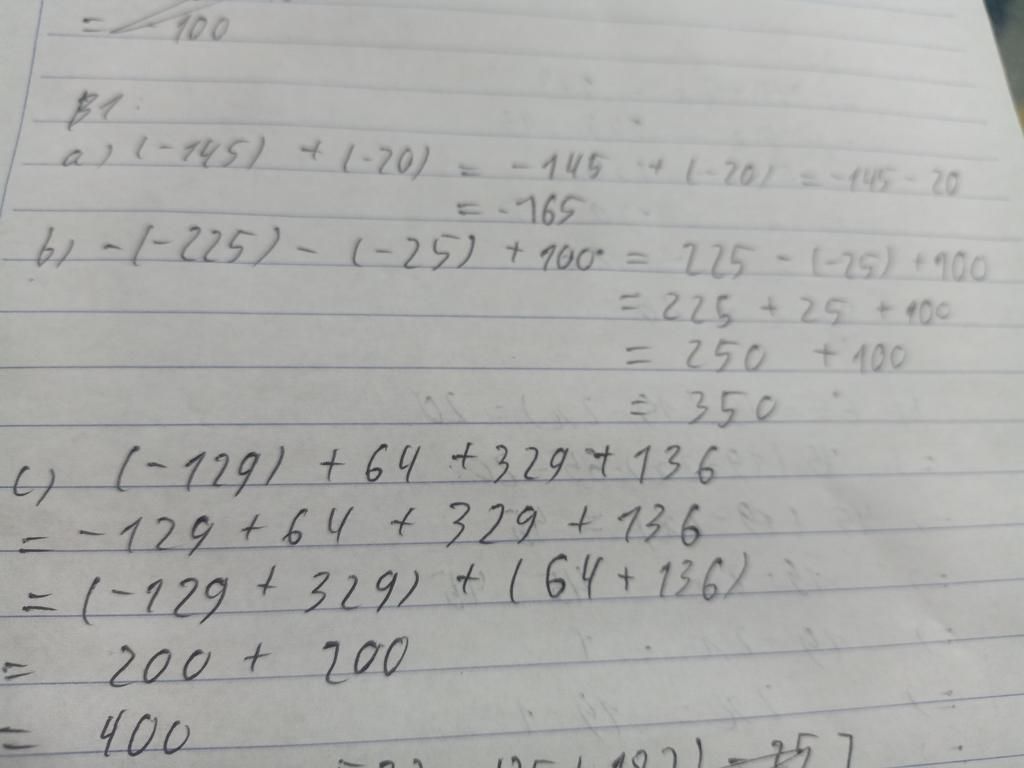 = 100
B1:
a) (-145) + (-20) = -145 + (-20) = -145 - 20
= -165
b) -(-225) - (-25) + 100 = 225 - (-25) + 100
= 225 + 25 + 100
= 250 + 100
= 350
c) (-129) + 64 + 329 + 136
= -129 + 64 + 329 + 136
= (-129 + 329) + (64 + 136)
= 200 + 200
= 400